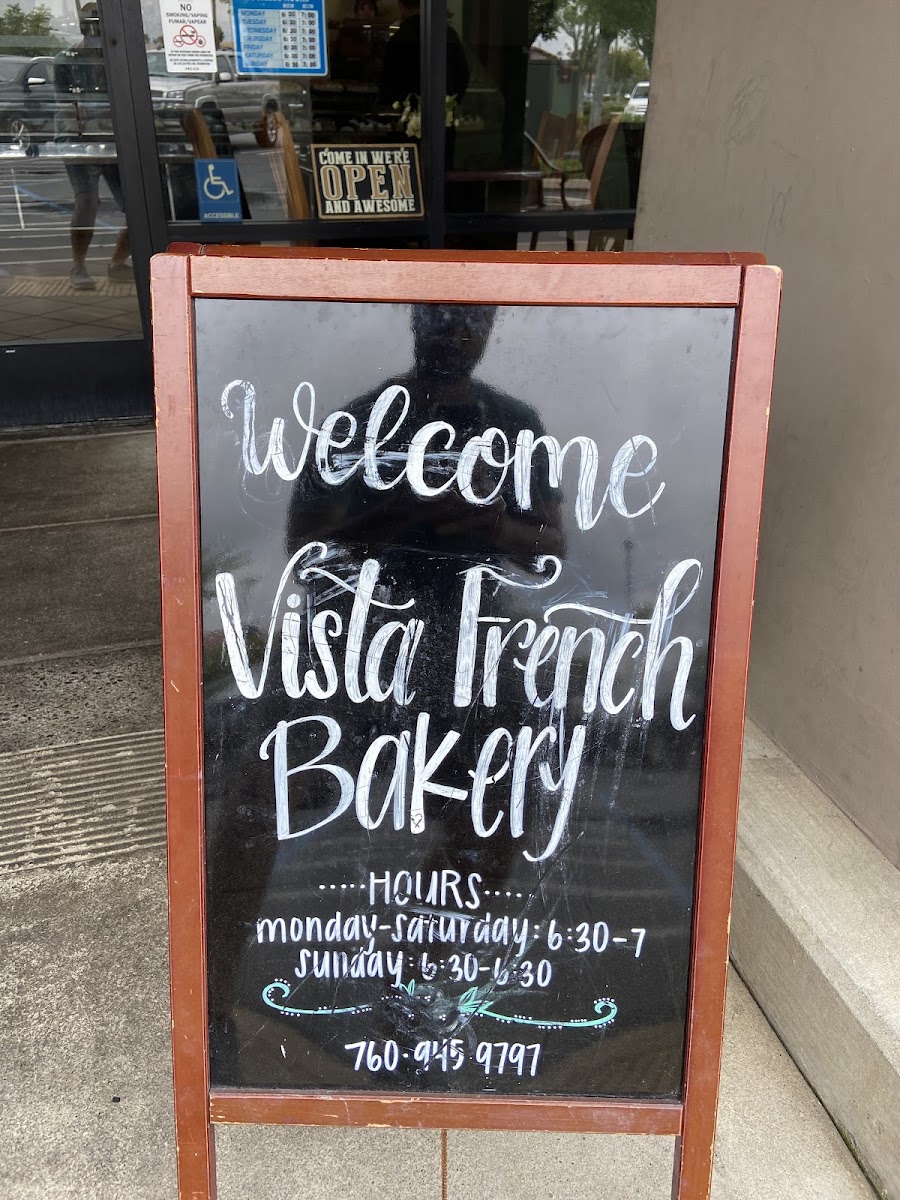 NO
SMOKING/VAPING
FUMAR/VAPEAR
MONDAY 6:30 7:00
TUESDAY 6:30 7:00
WEDNESDAY 6:30 7:00
THURSDAY 6:30 7:00
FRIDAY 6:30 7:00
SATURDAY 6:30 7:00
ACCESSIBLE
COME IN WE'RE
OPEN
AND AWESOME
Welcome
Vista French
Bakery
·····HOURS·····
monday-saturday: 6:30-7
sunday: 6:30-6:30
760·945 9797